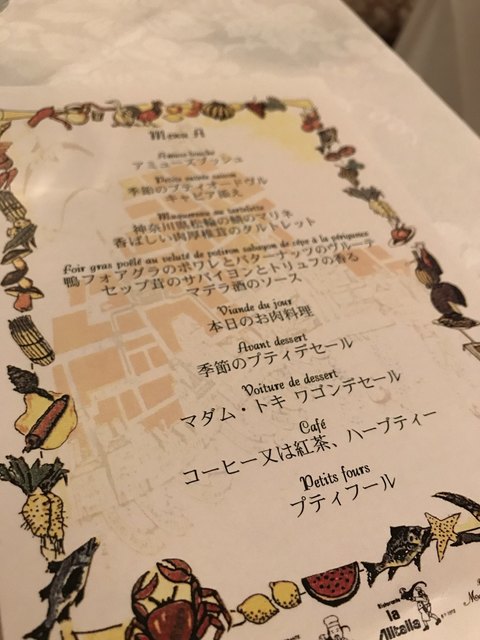 Menu A
Amuse bouche
アミューズブッシュ
季節のプティオードヴル
キャビア添え
神奈川県松輪の鯖のマリネ
香ばしい肉厚椎茸のタルトレット
Foir gras poêlé au velouté de potiron sabayon de cèpe à la périgueux
鴨フォアグラのポワレとバターナッツのヴルーテ
セップ茸のサバイヨンとトリュフの香る
マデラ酒のソース
Viande du jour
本日のお肉料理
Avant dessert
季節のプティデセール
Voiture de dessert
マダム・トキ ワゴンデセール
Café
コーヒー又は紅茶、ハーブティー
Petits fours
プティフール
la